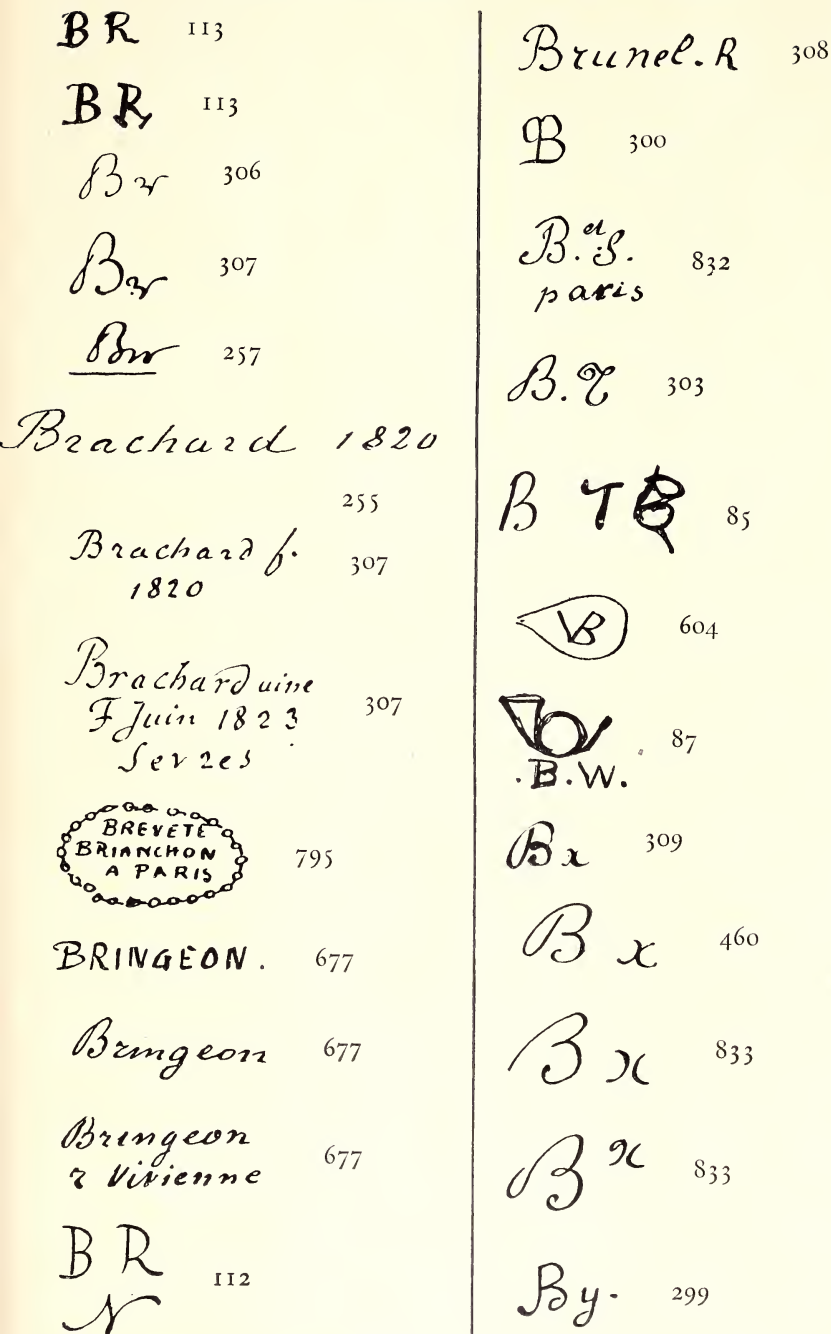 BR 113
BR 113
Br 306
Br 307
Br 257
Brachard 1820
255
Brachard f. 307
1820
Brachard aine
F Juin 1823 307
Sevres
BREVETÉ
BRIANCHON 795
A PARIS
BRINGEON. 677
Bringeon 677
Bringeon
r Vivienne 677
BR
N 112
Brunel. R 308
B 300
B. et S. 832
paris
B. T 303
B T B 85
VB 604
.B.W. 87
Bx 309
B x 460
B x 833
B x 833
By. 299